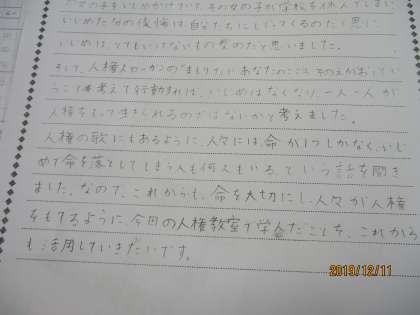 その女の子が学校を休んでしまい
いじめたなの後悔は自分たちにとってくるのだと思い
いじめは、とてもいけないもの型のだと思いました。
そして、人権メッセージの
うことを考えて行動すれば、いじめはなくなり、一人一人が
人権をもって生きられるのではないかと考えました。
人権の歌にもあるように、人々には命が1つしかなく、いじ
めで命を落としてしまう人も何人もいる、という話を聞き
ました。なので、これからも、命を大切にし、人々が人権
をもてるように、今日の人権教室で学んだことを、これから
も活用していきたいです。
2019/12/11